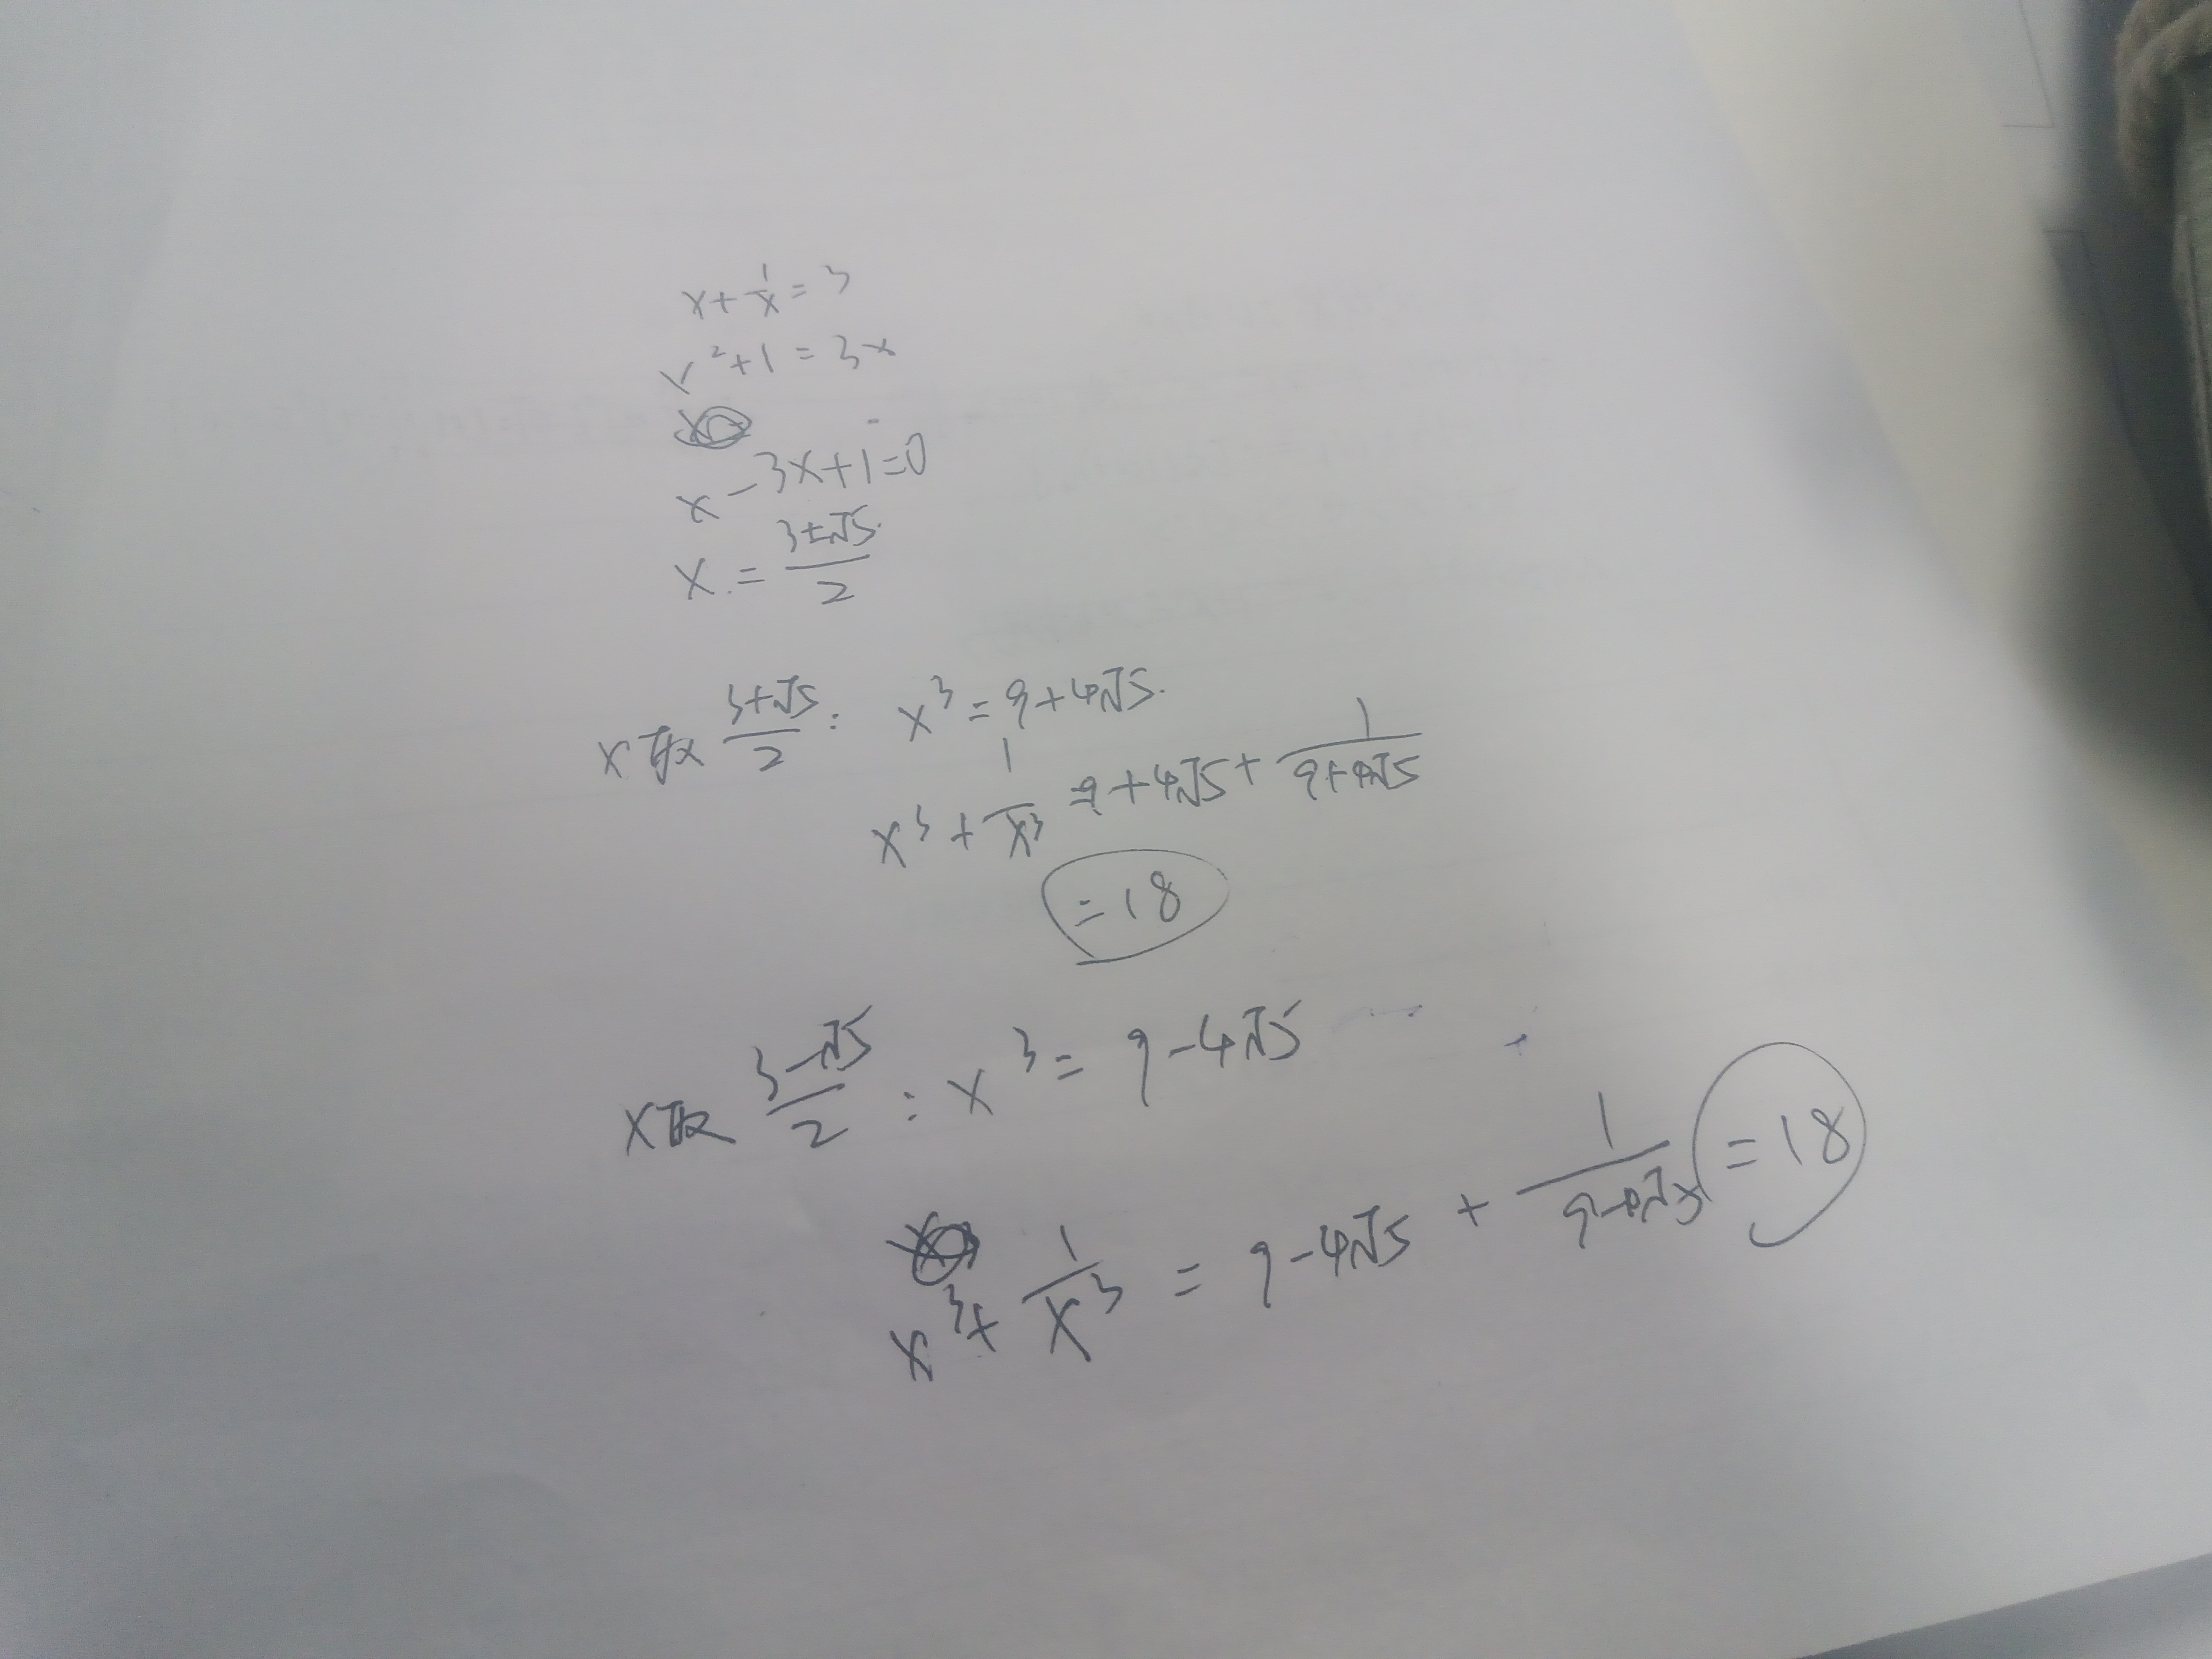 x + 1/x = 3
x² + 1 = 3x
x - 3x + 1 = 0
x = (3±√5)/2
x取 (3+√5)/2 : x³ = 9+4√5.
x³ + 1/x³ = 9+4√5 + 1/(9+4√5)
= 18
x取 (3-√5)/2 : x³ = 9-4√5
x³ + 1/x³ = 9-4√5 + 1/(9-4√5) = 18